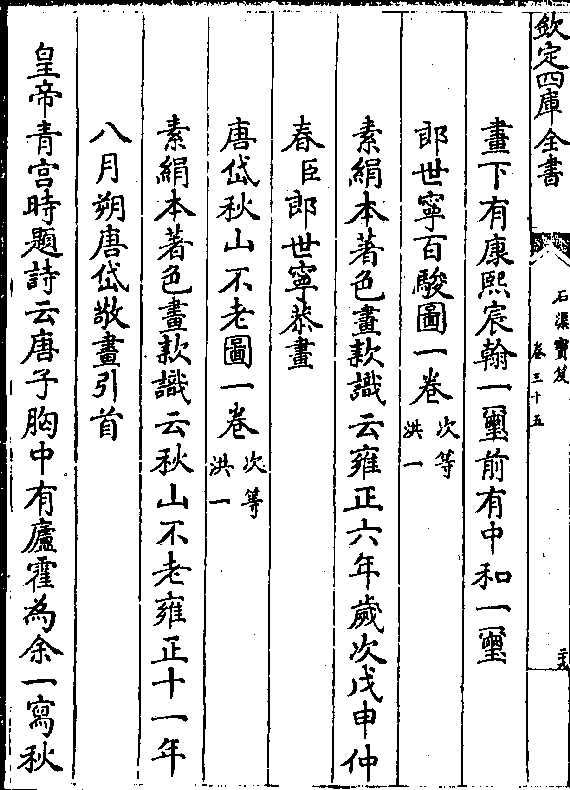 欽定四庫全書
石渠寶笈
卷三十五
畫下有康熙宸翰一璽前有中和一璽
郎世寧百駿圖一卷次等洪一
素絹本著色畫款識云雍正六年歲次戊申仲
春臣郎世寧恭畫
唐岱秋山不老圖一卷次等洪一
素絹本著色畫款識云秋山不老雍正十一年
八月朔唐岱敬畫引首
皇帝青宫時題詩云唐子胸中有廬霍為余一寫秋